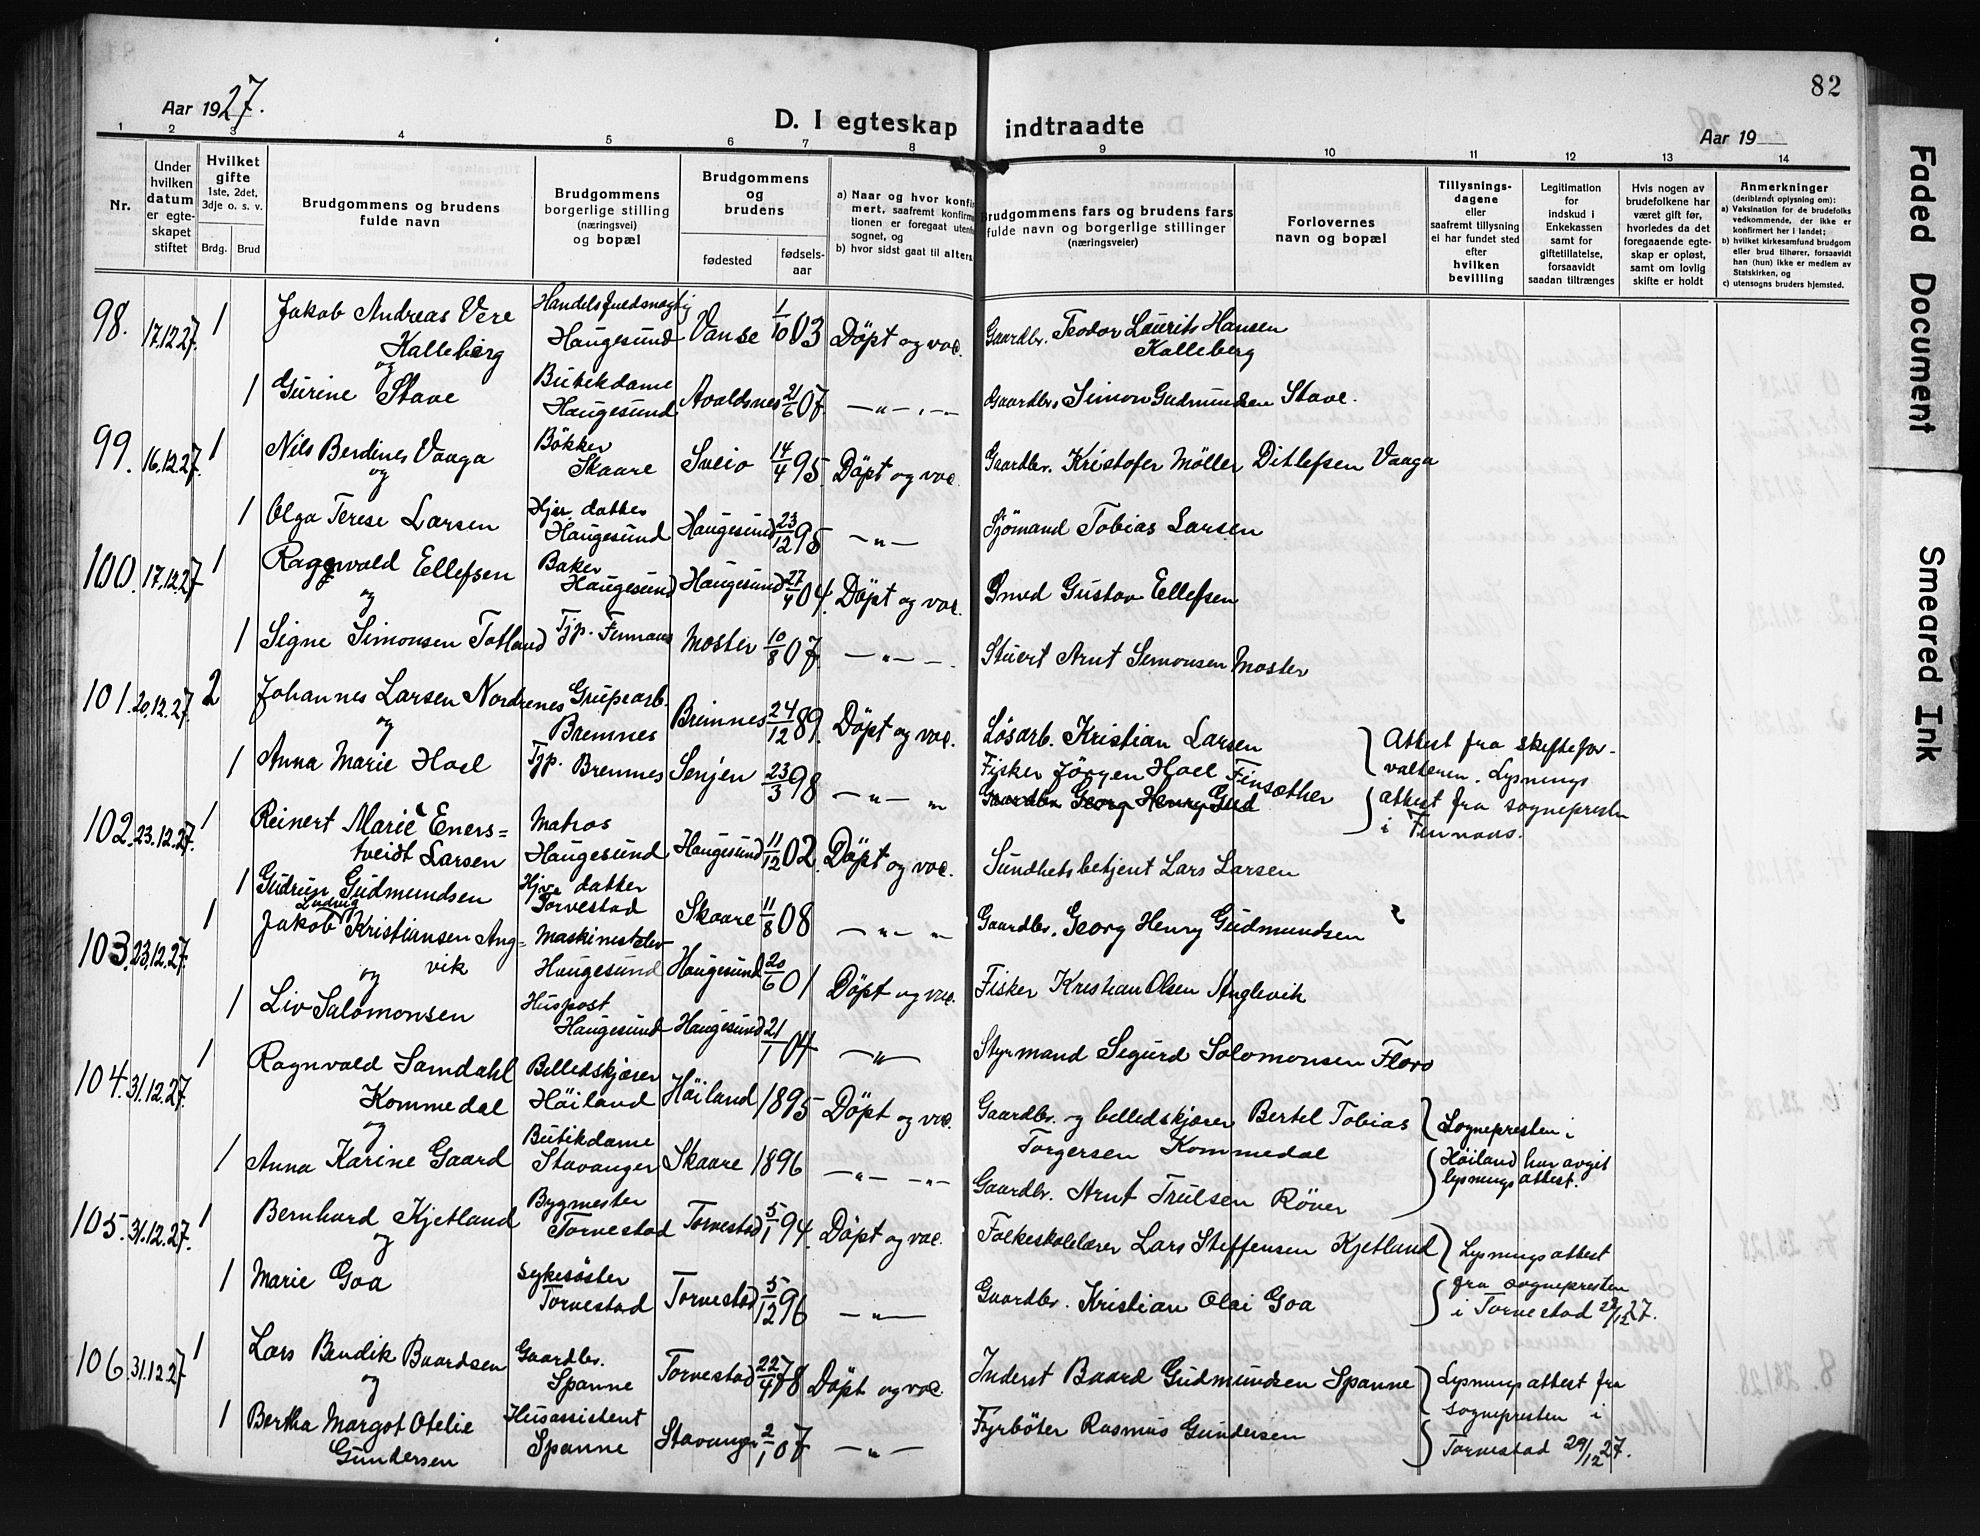 82
Aar 1927.
D. I egteskap indtraadte
Aar 19
1 2 3 4 5 6 7 8 9 10 11 12 13 14
Nr.
Under hvilken datum er egteskapet stiftet
Hvilket gifte 1ste, 2det, 3dje o. s. v.
Brdg. Brud
Brudgommens og brudens fulde navn
Brudgommens borgerlige stilling (næringsvei) og bopæl
Brudgommens og brudens
fødested
fødsels-aar
a) Naar og hvor konfirmert, saafremt konfirmationen er foregaat utenfor sognet, og
b) hvor sidst gaat til alters.
Brudgommens fars og brudens fars fulde navn og borgerlige stillinger (næringsveier)
Forlovernes navn og bopæl
Tillysnings-dagene eller saafremt tillysning ei har fundet sted efter hvilken bevilling
Legitimation for indskud i Enkekassen samt for giftetillatelse, forsaavidt saadan tiltrænges
Hvis nogen av brudefolkene har været gift før, hvorledes da det foregaaende egteskap er opløst, samt om lovlig skifte er holdt
Anmerkninger (deriblandt oplysning om):
a) Vaksination for de brudefolks vedkommende, der ikke er konfirmert her i landet;
b) hvilket kirkesamfund brudgom eller brud tilhører, forsaavidt han (hun) ikke er medlem av Statskirken, og
c) utensogns bruders hjemsted.
98. 17.12.27. 1 Jakob Andreas Vere Kalleberg Haugesund Vanse 1/10 03 Döpt og vac. Gaardbr. Teodor Laurits Hansen Kalleberg
og
1 Gurine Stave Butikdame Haugesund Avaldsnes 21/6 07 — " — Gaardbr. Simon Gudmundsen Stave.
99. 16.12.27. 1 Nils Berdines Vaaga Bökker Skaare Sveio 14/4 95 Döpt og vac. Gaardbr. Kristofer Möller Ditlefsen Vaaga
og
1 Olga Terese Larsen Hjv. datter Haugesund Haugesund 23/12 98 — " — Sjömand Tobias Larsen
100. 17.12.27 1 Ragnvald Ellefsen Baker Haugesund Haugesund 27/4 04. Döpt og vac. Smed Gustav Ellefsen
og
1 Signe Simonsen Totland Tjp. Finnaas Moster 10/8 07 — " — Stuert Arnt Simonsen Moster
101. 20.12.27. 2 Johannes Larsen Nordrenes Grupearb. Bremnes Brimnes 24/12 89. Döpt og vac. Løsarb. Kristian Larsen } Attest fra skiftefor-
og valteren. Lysnings
1 Anna Marie Hoel Tjp. Bremnes Senjen 23/3 98 — " — " Fisker Jörgen Hoel Finsæther } attest fra sognepresten
Gaardbr. Georg Henry Gud i Finnaas.
102. 23.12.27. 1 Reinert Marie Eners=
tveidt Larsen Matros Haugesund Haugesund 11/12 02. Döpt og vac. Sundhetsbetjent Lars Larsen
1 Gudrun Gudmundsen Hjv. datter Torvestad Skaare 11/8 08 — " — " Gaardbr. Georg Henry Gudmundsen
103. 23.12.27. 1 Jakob Ludvig Kristiansen Ang=
vik Haugesund Haugesund 20/6 01 Döpt og vac. Fisker Kristian Olsen Anglevik
og
1 Liv Salomonsen Huspost Haugesund Haugesund 21/1 04 — " — Styrmand Sigurd Solomonsen Florö
104. 31.12.27. 1 Ragnvald Samdahl Kommedal Billedskjærer Höiland Höiland 1895 Döpt og vac. Gaardbr. og billedskjærer Bertel Tobias Torgersen Kommedal } Sognepresten i
og Höiland har avgit
1 Anna Karine Gaard Butikdame Stavanger Skaare 1896 — " — " — Gaardbr. Arnt Trulsen Röver } lysningsattest.
105. 31.12.27. 1 Bernhard Kjetland Bygmester Torvestad Torvestad 5/1 94. Döpt og vac. Folkeskolelærer Lars Steffensen Kjetland } Lysningsattest
og fra sognepresten
1 Marie Goa Sykesöster Torvestad Torvestad 5/12 96 — " — Gaardbr. Kristian Olai Goa } i Torvestad 27.
106. 31.12.27 1 Lars Bendik Baardsen Gaardbr. Spanne Torvestad 22/4 78 Döpt og vac. Inderst Baard Gudmundsen Spanne } Lysningsattest fra
og sognepresten i
1 Bertha Margot Otelie Gundersen Husassistent Spanne Stavanger 2/1 07 — " — Fyrböter Rasmus Gundersen } Torvestad 29/12 27.
Faded Document
Smeared Ink